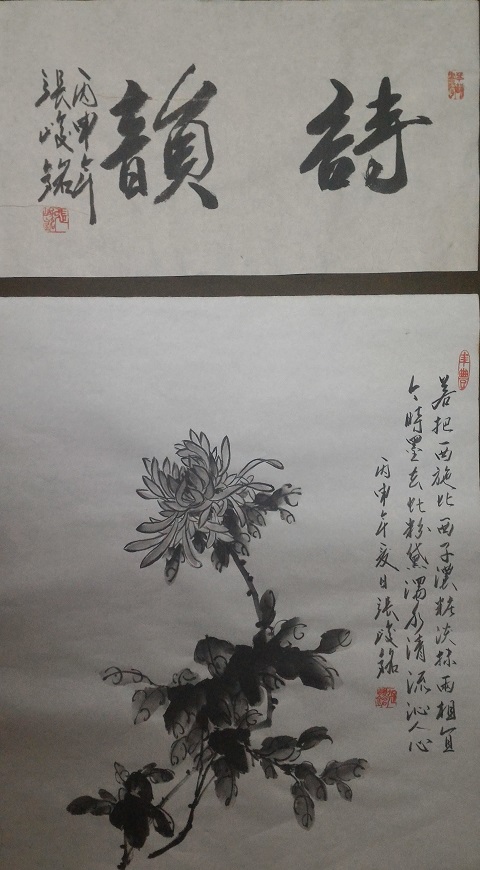 詩韻
丙申年
張峻銘
若把西施比西子濃妝淡抹兩相宜
今時墨去比粉黛濁水清流沁人心
丙申年夏日張峻銘